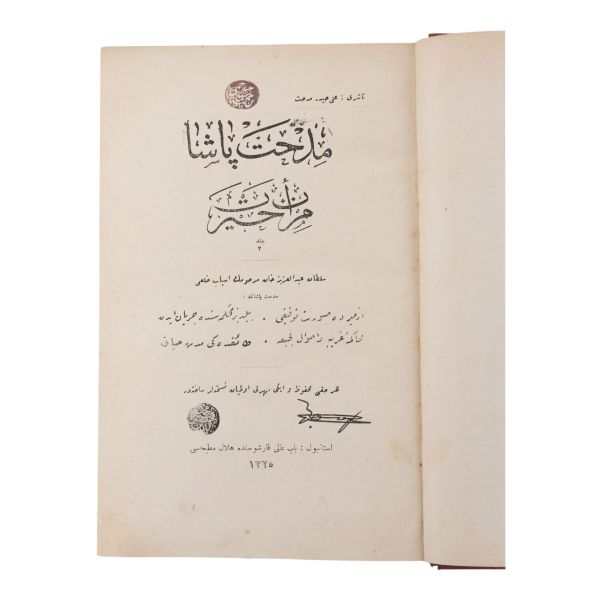 ناشری : علی حیدر مدحت
مدحت پاشا
مرآت حیرت
جلد
٢
سلطان عبدالعزیز خان مرحومك اسباب خلعی
مدحت پاشانك :
ازمیرده صورت توقیفی . ییلدیز محكمه‌سنده جریان ایدن
محاكمهٔ غریبه و احوال فجیعه . طائفده‌كی مدت حیاتی
هر حقی محفوظ و ایكی مهرلی اولمیان نسخه‌لر ماخوذدر
استانبول : باب عالی قارشوسنده هلال مطبعه‌سی
١٣٢٥